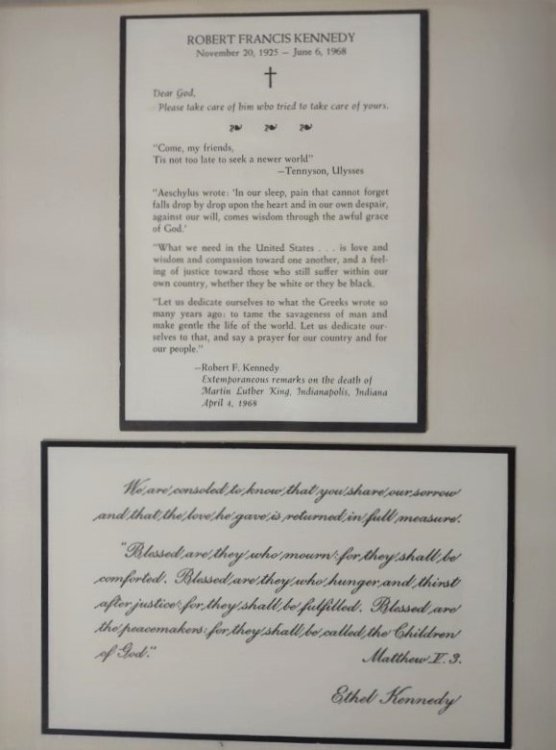 ROBERT FRANCIS KENNEDY
November 20, 1925 — June 6, 1968
Dear God,
Please take care of him who tried to take care of yours.
"Come, my friends,
Tis not too late to seek a newer world"
—Tennyson, Ulysses
"Aeschylus wrote: 'In our sleep, pain that cannot forget
falls drop by drop upon the heart and in our own despair,
against our will, comes wisdom through the awful grace
of God.'
"What we need in the United States . . . is love and
wisdom and compassion toward one another, and a feel-
ing of justice toward those who still suffer within our
own country, whether they be white or they be black.
"Let us dedicate ourselves to what the Greeks wrote so
many years ago: to tame the savageness of man and
make gentle the life of the world. Let us dedicate our-
selves to that, and say a prayer for our country and for
our people."
—Robert F. Kennedy
Extemporaneous remarks on the death of
Martin Luther King, Indianapolis, Indiana
April 4, 1968
We are consoled to know that you share our sorrow
and that the love he gave is returned in full measure.
"Blessed are they who mourn: for they shall be
comforted. Blessed are they who hunger and thirst
after justice: for they shall be fulfilled. Blessed are
the peacemakers: for they shall be called the Children
of God." Matthew V. 3.
Ethel Kennedy